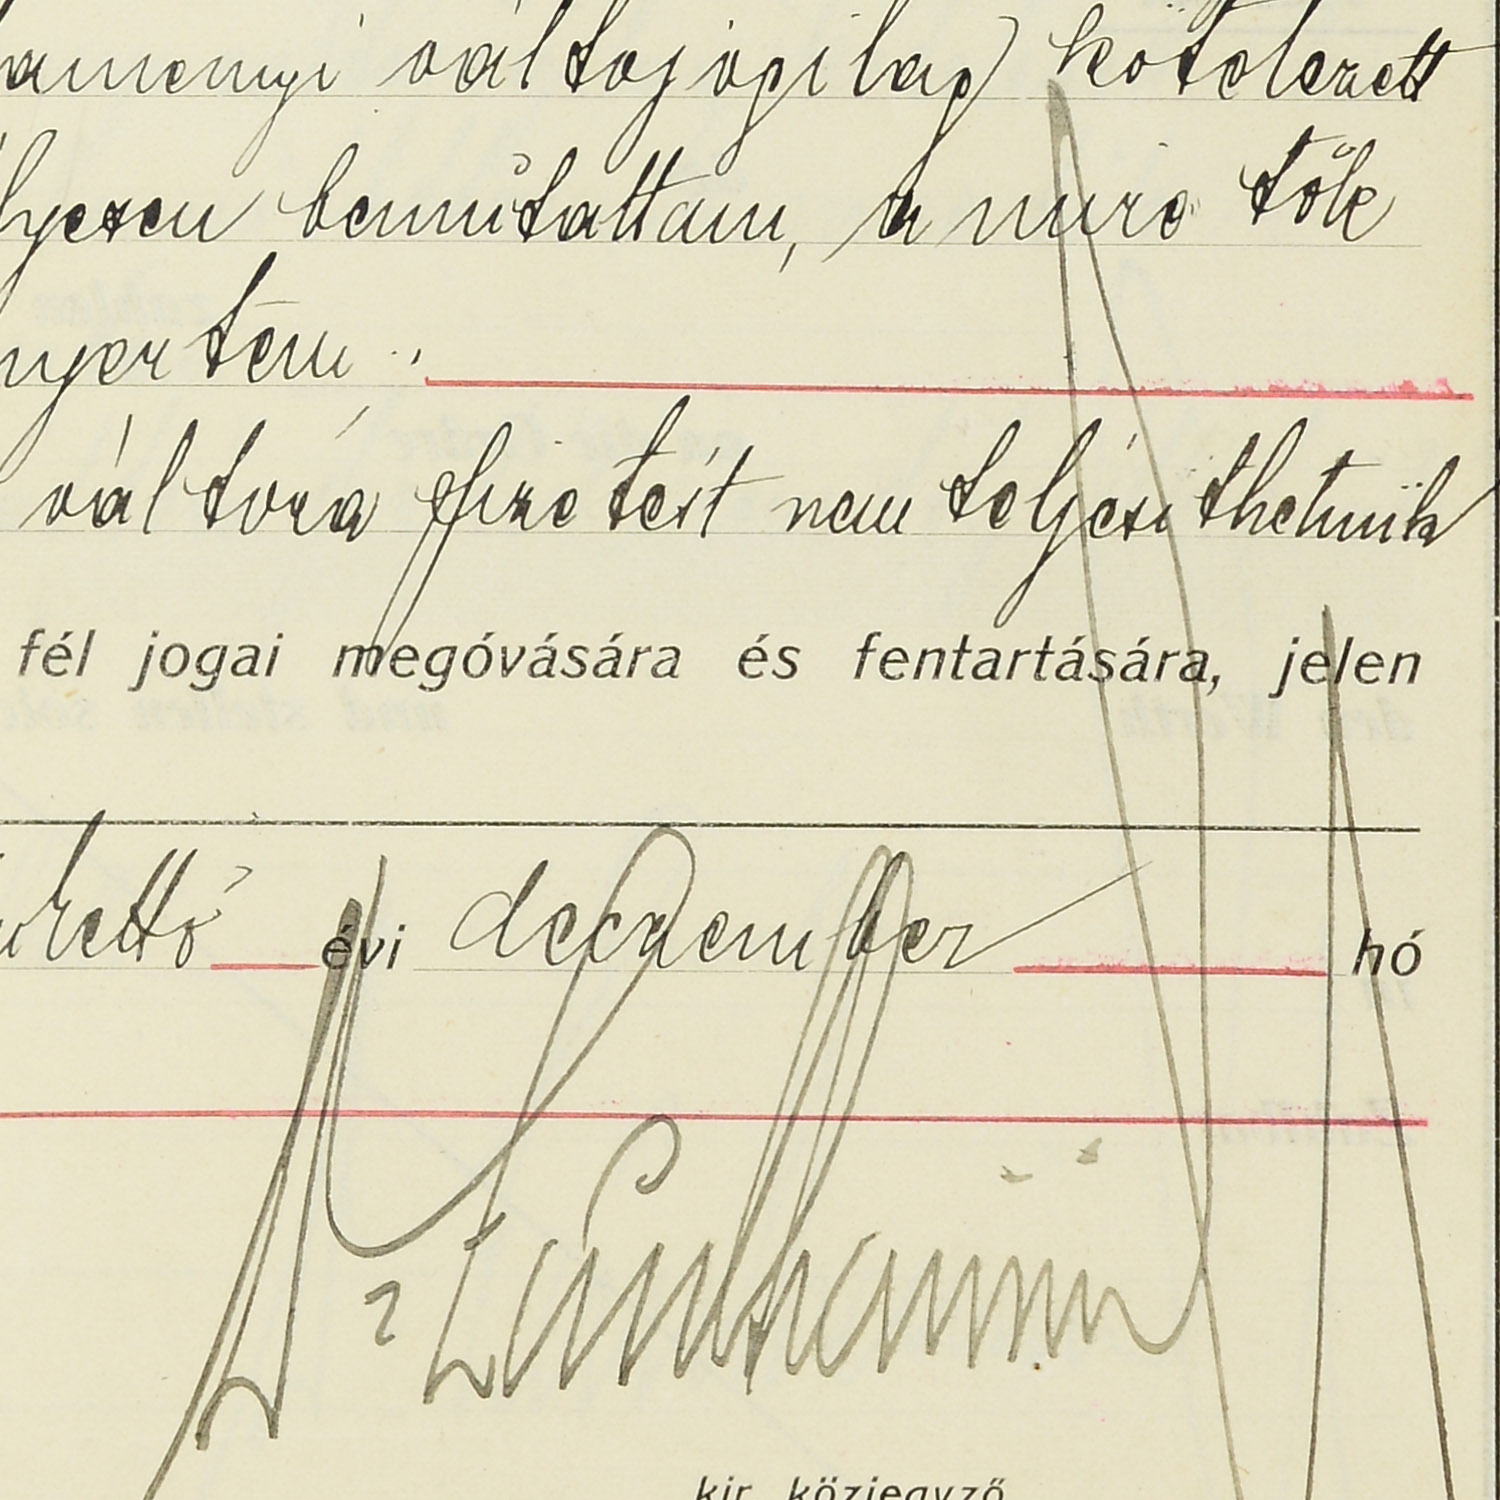 váltojogilag kötelezett
bemutattam, a mire tőlk
nyertem.
váltóra fizetést nem teljesithetnük
fél jogai megóvására és fentartására, jelen
évi deczember hó
kir. közjegyző